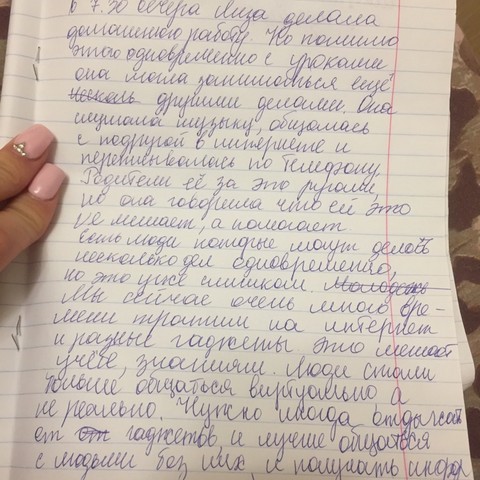 В 7.30 вечера Лиза делала
домашнюю работу. Но помимо
этого одновременно с уроками
она могла заниматься ещё
другими делами. Она
слушала музыку, общалась
с подругой в интернете и
переписывалась по телефону.
Родители её за это ругали,
но она говорила что ей это
не мешает, а помогает.
Есть люди которые могут делать
несколько дел одновременно,
но это уже слишком.
Мы сейчас очень много вре-
мени тратим на интернет
и разные гаджеты. Это мешает
учёбе, знаниям. Люди стали
больше общаться виртуально а
не реально. Нужно иногда отдыхать
от гаджетов и лучше общаться
с людьми без них, и получать информ